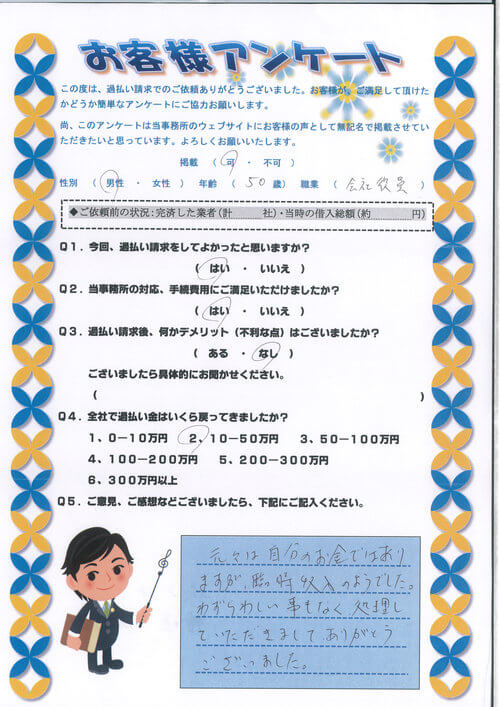 お客様アンケート
この度は、過払い請求でのご依頼ありがとうございました。お客様が、ご満足して頂けた
かどうか簡単なアンケートにご協力お願いします。
尚、このアンケートは当事務所のウェブサイトにお客様の声として無記名で掲載させてい
ただきたいと思っています。よろしくお願いいたします。
掲載 （ 可 ・ 不可 ）
性別 （ 男性 ・ 女性 ） 年齢 （ 50 歳） 職業 （ 会社役員 ）
◆ご依頼前の状況：完済した業者（計 社）・当時の借入総額（約 円）
Q1．今回、過払い請求をしてよかったと思いますか？
（ はい ・ いいえ ）
Q2．当事務所の対応、手続費用にご満足いただけましたか？
（ はい ・ いいえ ）
Q3．過払い請求後、何かデメリット（不利な点）はございましたか？
（ ある ・ なし ）
ございましたら具体的にお聞かせください。
（ ）
Q4．全社で過払い金はいくら戻ってきましたか？
1、0－10万円 2、10－50万円 3、50－100万円
4、100－200万円 5、200－300万円
6、300万円以上
Q5．ご意見、ご感想などございましたら、下記にご記入ください。
元々は自分のお金ではあり
ますが、臨時収入のようでした。
わずらわしい事もなく処理し
ていただきまして ありがとう
ございました。